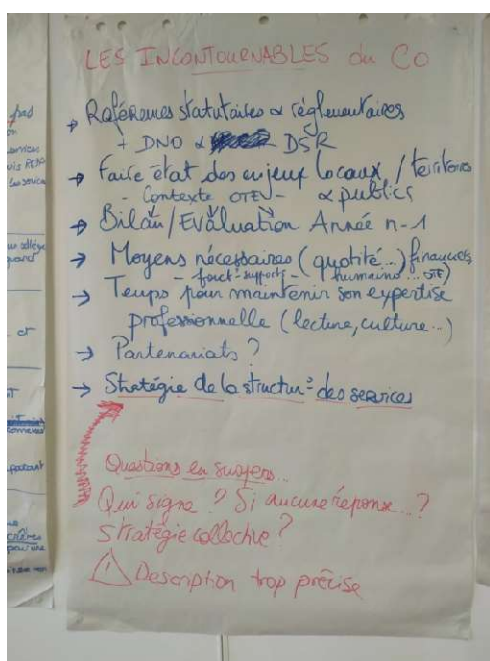 LES INCONTOURNABLES du CO
→ Références statutaires & réglementaires
+ DNO & DSR
→ Faire état des enjeux locaux / territoires
- Contexte OTEV - & publics
→ Bilan / Evaluation Année n-1
→ Moyens nécessaires (quotité...) financiers
- fonct° support - humains...
→ Temps pour maintenir son expertise
professionnelle (lecture, culture...)
→ Partenariats ?
→ Stratégie de la structure° des services
Questions en suspens...
Qui signe ? Si aucune réponse...?
Stratégie collective ?
⚠ Description trop précise